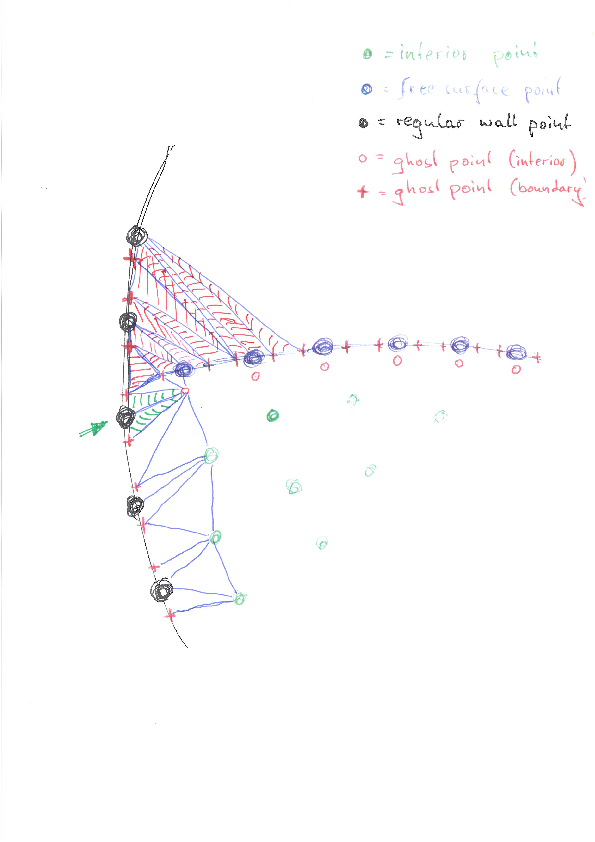 = interior point
= free surface point
= regular wall point
= ghost point (interior)
= ghost point (boundary)